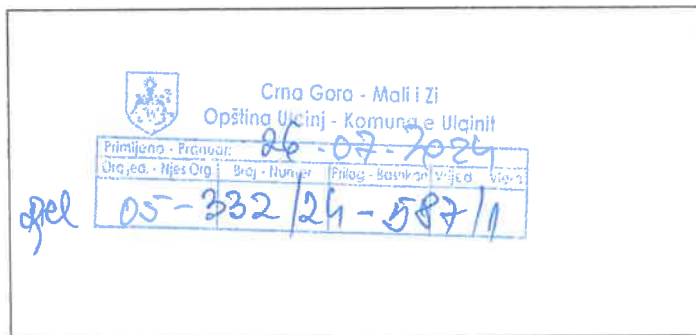 Crna Gora - Mali i Zi
Opština Ulcinj - Komuna e Ulqinit
Primljeno - Pranuar: 26-07-2024
Org.jed. - Njes Org Broj - Numer Prilog - Bashkan Vrijed
05-332/24-587/1